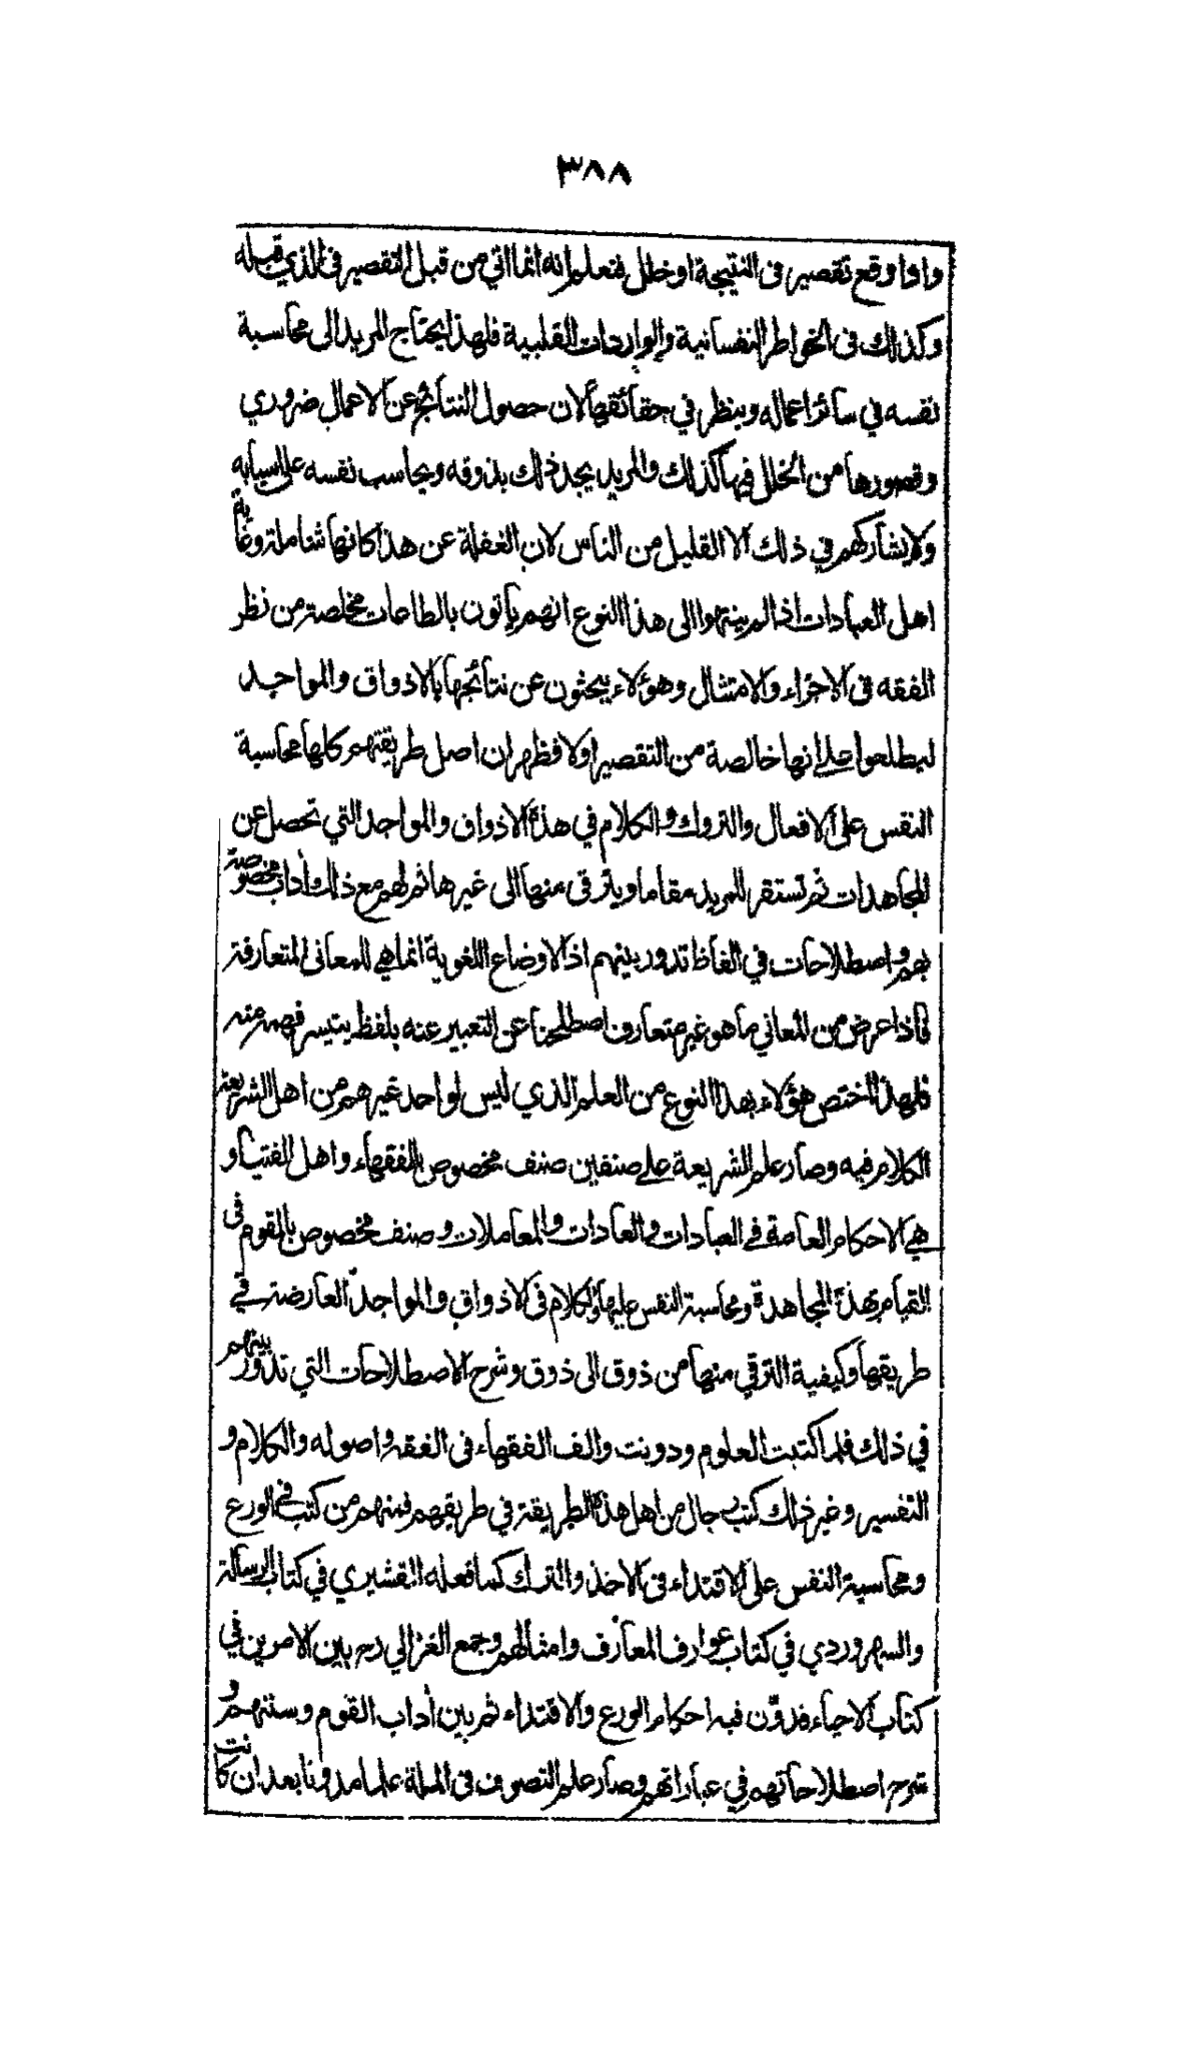 ٣٨٨
واذا وقع تقصير في النتيجة او خلل فنعلم انه انما اتي من قبل التقصير في الذي قبله
وكذلك في الخواطر النفسانية والواردات القلبية فلهذا يحتاج المريد الى محاسبة
نفسه في سائر اعماله وينظر في حقائقها لان حصول النتائج عن الاعمال ضروري
وقصورها من الخلل فيها كذلك والمريد يجد ذلك بذوقه ويحاسب نفسه على اسبابه
ولا يشاركهم في ذلك الا القليل من الناس لان الغفلة عن هذا كانها شاملة وغاية
اهل العبادات اذا لم ينتهوا الى هذا النوع انهم يأتون بالطاعات مخلصة من نظر
الفقه في الاجزاء والامتثال وهؤلاء يبحثون عن نتائجها بالاذواق والمواجد
ليطلعوا على انها خالصة من التقصير اولا فظهر ان اصل طريقتهم كلها محاسبة
النفس على الافعال والتروك والكلام في هذه الاذواق والمواجد التي تحصل عن
المجاهدات ثم تستقر للمريد مقاما ويترقى منها الى غيرها ثم لهم مع ذلك اداب مخصوصة
بهم واصطلاحات في الفاظ تدور بينهم اذ الاوضاع اللغوية انما هي للمعانى المتعارفة
فاذا عرض من المعاني ما هو غير متعارف اصطلحنا عن التعبير عنه بلفظ يتيسر فهمه منه
فلهذا اختص هؤلاء بهذا النوع من العلم الذي ليس لواحد غيرهم من اهل الشريعة
الكلام فيه وصار علم الشريعة على صنفين صنف مخصوص بالفقهاء واهل الفتيا و
هي الاحكام العامة في العبادات والعادات والمعاملات وصنف مخصوص بالقوم في
القيام بهذه المجاهدة ومحاسبة النفس عليها والكلام في الاذواق والمواجد العارضة في
طريقها وكيفية الترقي منها من ذوق الى ذوق وشرح الاصطلاحات التي تدور بينهم
في ذلك فلما كتبت العلوم ودونت والف الفقهاء في الفقه واصوله والكلام و
التفسير وغير ذلك كتب رجال من اهل هذه الطريقة في طريقهم فمنهم من كتب في الورع
ومحاسبة النفس على الاقتداء في الاخذ والترك كما فعله القشيري في كتاب الرسالة
والسهروردي في كتاب عوارف المعارف وامثالهم وجمع الغزالي رح بين الامرين في
كتاب الاحياء فدوّن فيه احكام الورع والاقتداء ثم بين أداب القوم وسننهم و
شرح اصطلاحاتهم في عباراتهم وصار علم التصوف في الملة علما مدونا بعد ان كانت